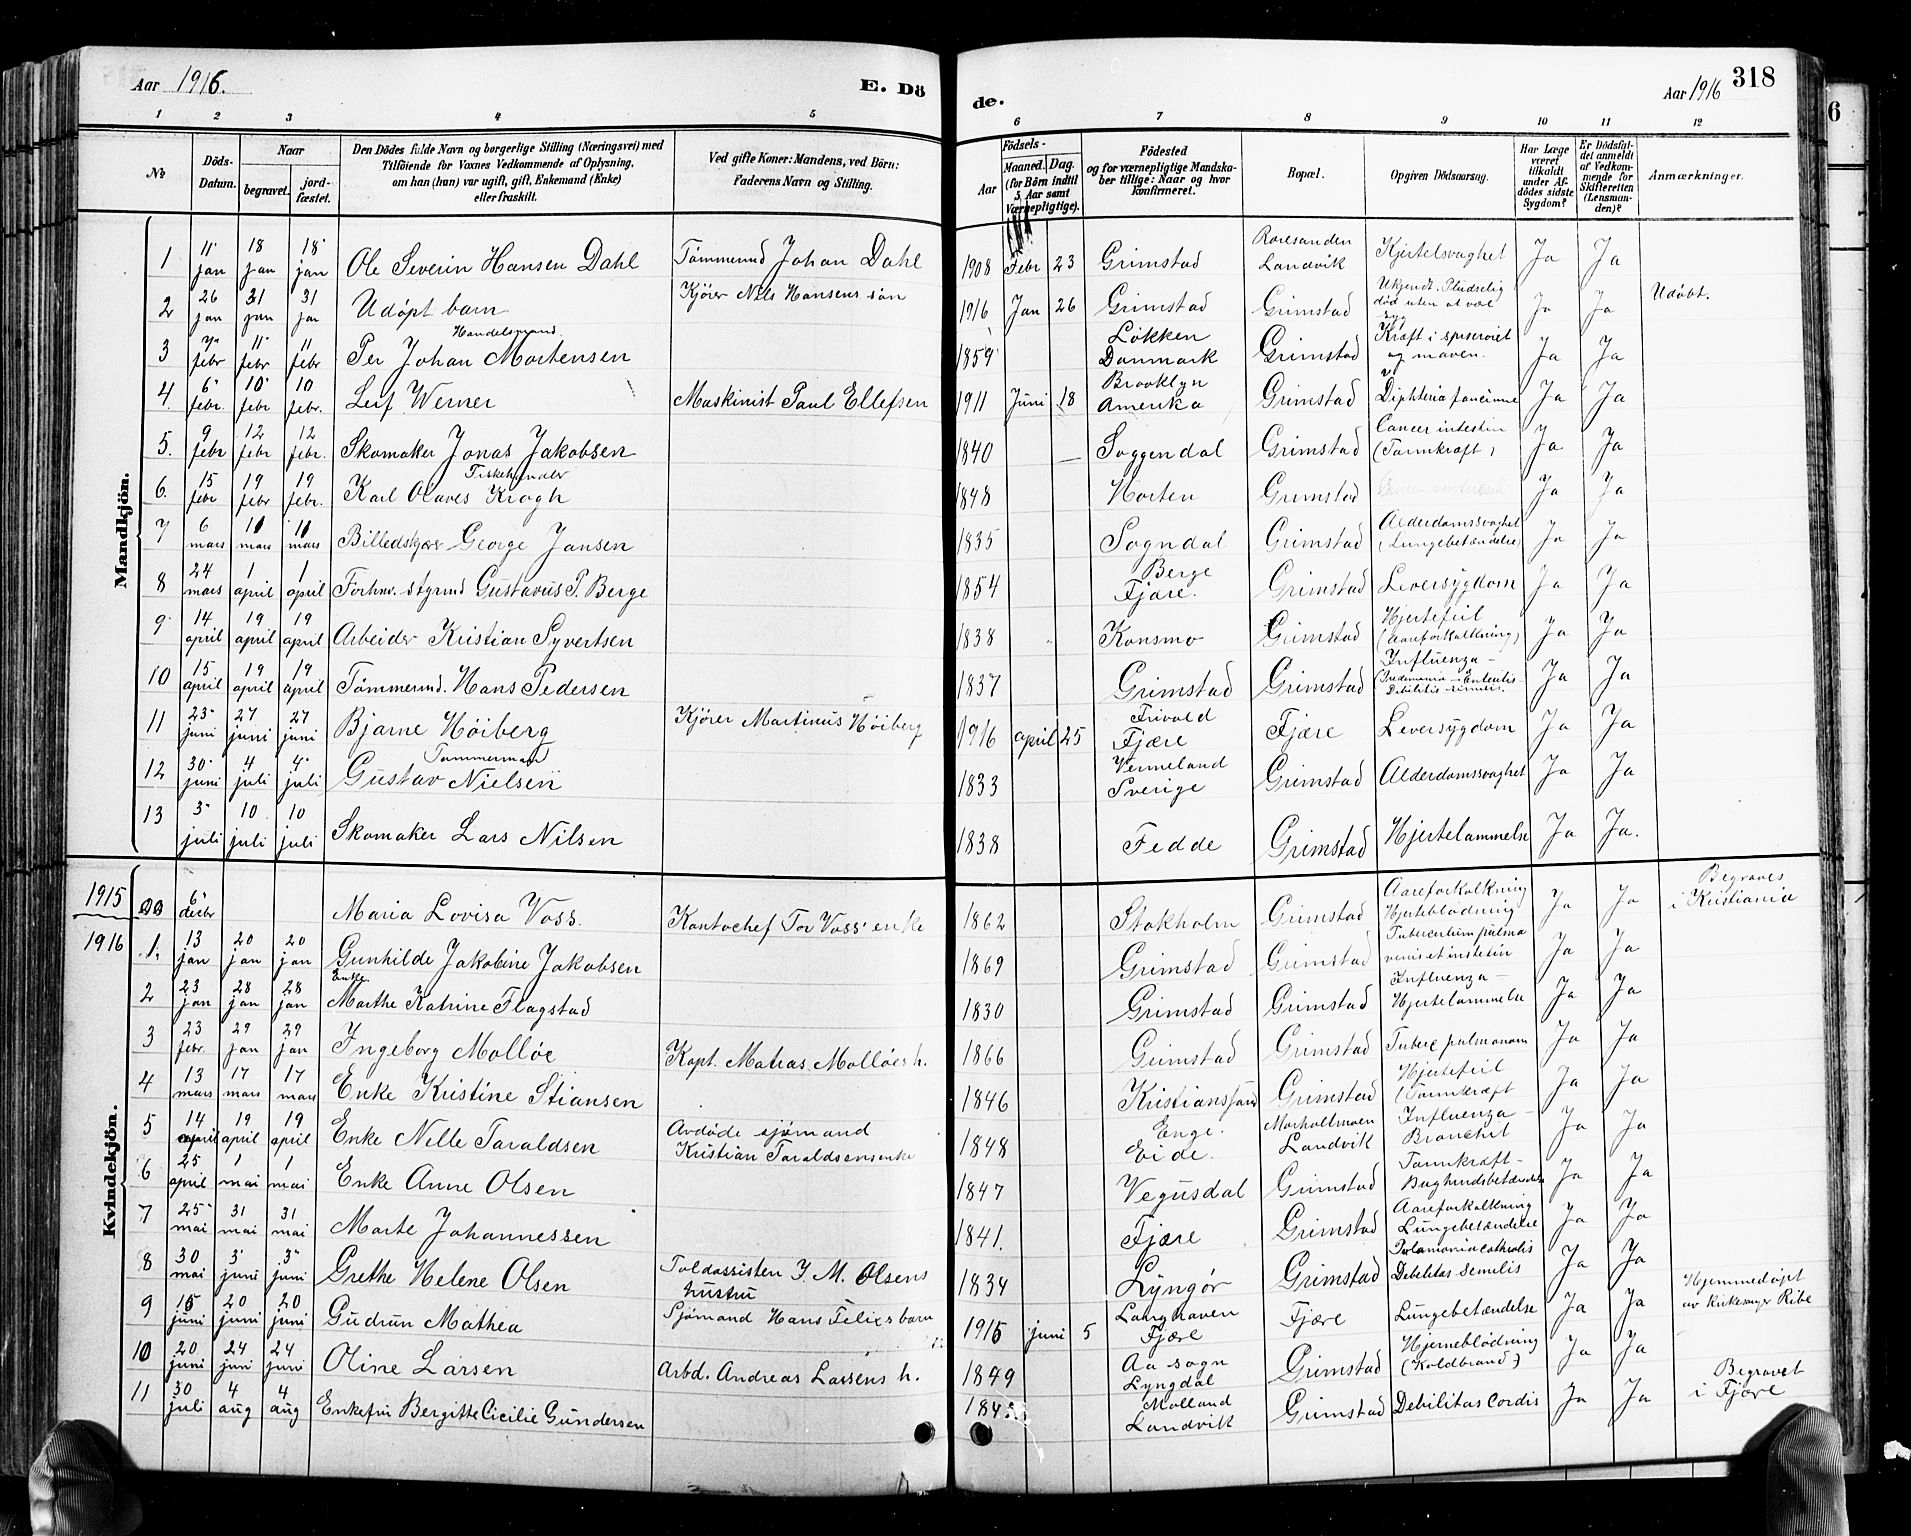 Aar 1916. E. Dö
de. Aar 1916 318
1 2 3 4 5 6 7 8 9 10 11 12
No
Döds-Datum.
Naar
begravet.
jord-fæstet.
Den Dödes fulde Navn og borgerlige Stilling (Næringsvei) med
Tilföiende for Voxnes Vedkommende af Oplysning,
om han (hun) var ugift, gift, Enkemand (Enke)
eller fraskilt.
Ved gifte Koner: Mandens, ved Börn:
Faderens Navn og Stilling.
Födsels-
Aar
Maaned. Dag.
(for Börn indtil
5 Aar samt
Værnepligtige).
Födested
og for værnepligtige Mandska-
ber tillige: Naar og hvor
konfirmeret.
Bopæl.
Opgiven Dödsaarsag.
Har Læge
været
tilkaldt
under Af-
dödes sidste
Sygdom?
Er Dödsfal-
det anmeldt
af Vedkom-
mende for
Skifteretten
(Lensman-
den)?
Anmærkninger.
Mandkjön.
1 11 jan 18 jan 18 jan Ole Severin Hansen Dahl Tømmermd Johan Dahl 1908 Febr 23 Grimstad Roresanden Landvik Kjertelsvaghet Ja Ja
2 26 jan 31 jan 31 jan Udøpt barn Kjører Nils Hansens søn 1916 Jan 26 Grimstad Grimstad Ukjendt. Pludselig død uten at være syg Ja Ja Udøbt.
3 7 febr 11 febr 11 febr Handelsmand Per Johan Mortensen 1859 Løkken Danmark Grimstad Kræft i spiserøret og maven. Ja Ja
4. 6 febr. 10 febr 10 febr. Leif Werner Maskinist Paul Ellefsen 1911 Juni 18 Brooklyn Amerika Grimstad Diphteria faucium Ja Ja
5. 9 febr 12 febr 12 febr. Skomaker Jonas Jakobsen 1840 — Soggendal Grimstad Cancer intestin (Tarmkræft) Ja Ja
6. 15 febr 19 febr 19 febr. Fiskehandler Karl Olaves Krogh 1848 Horten Grimstad Ja Ja
7 6 mars 11 mars 11 mars Billedskjær George Jansen 1835 Sogndal Grimstad Alderdomssvaghet (Lungebetændelse) Ja Ja
8 24 mars 1 april 1 april Forhnv. styrmd Gustavus P. Berge 1854 Berge Fjære. Grimstad Leversygdom Ja Ja
9 14 april 19 april 19 april Arbeider Kristian Syvertsen 1838 Konsmo Grimstad Hjertefeil (Aareforkalkning) Ja Ja
10 15 april 19 april 19 april Tømmermd. Hans Pedersen 1837 Grimstad Grimstad Influenza – Ja Ja
11 23 juni 27 juni 27 juni Bjarne Høiberg Kjører Martinus Høiberg 1916 april 25 Frivold Fjære Fjære Leversygdom Ja Ja
12 30 juni 4 juli 4 juli Tømmerman Gustav Nielsen 1833 Vermeland Sverige Grimstad Alderdomssvaghet Ja Ja
13 5 juli 10 juli 10 juli Skomaker Lars Nilsen 1838 Fedde Grimstad Hjertelammelse Ja Ja.
Kvindekjön.
1915 6 decbr Maria Lovisa Voss. Kontochef Tor Voss' enke 1862 Stokholm Grimstad Aareforkalkning Hjerteblødning Ja Ja Begraves i Kristiania
1916 1. 13 jan 20 jan 20 jan Gunhilde Jakobine Jakobsen 1869 Grimstad Grimstad Ja Ja
2 23 jan 28 jan 28 jan Enke Marthe Katrine Flagstad 1830 Grimstad Grimstad Influenza – Hjertelammelse Ja Ja
3 23 febr. 29 jan 29 jan Ingeborg Molløe Kapt. Matias Molløes h. 1866 Grimstad Grimstad Tuberc pulmonum Ja Ja
4 13 mars 17 mars 17 mars Enke Kristine Stiansen 1846 Kristianssand Grimstad Hjertefeil (Tarmkræft Ja Ja
5 14 april 19 april 19 april Enke Nelle Taraldsen Avdøde sjømand Kristian Taraldsens enke 1848 Enge. Eide. Morholtmoen Landvik Influenza – Bronchit Ja Ja
6 25 april 1 mai 1 mai Enke Anne Olsen 1847 Vegusdal Grimstad Tarmkræft – Bughindsbetændelse Ja Ja
7 25 mai 31 mai 31 mai Marte Johannessen 1841. Fjære Grimstad Aareforkalkning Lungebetændelse Ja Ja
8 30 mai 3 juni 3 juni Grethe Helene Olsen Toldassisten J. M. Olsens hustru 1834 Lyngør Grimstad Debilitas Semilis Ja Ja
9 15 juni 20 juni 20 juni Gudrun Mathea Sjømand Hans Felixs barn 1915 juni 5 Langhaven Fjære Fjære Lungebetændelse Ja Ja Hjemmedøpt av kirkesanger Ribe
10 20 juni 24 juni 24 juni Oline Larsen Arbd. Andreas Larsens h. 1849 Aa sogn Lyngdal Grimstad Hjerneblødning (Koldbrand) Ja Ja
11 30 juli 4 aug 4 aug Enkefru Bergitte Cicilie Gundersen Molland Landvik Grimstad Debilitas Cordis Ja Ja Begravet i Fjære